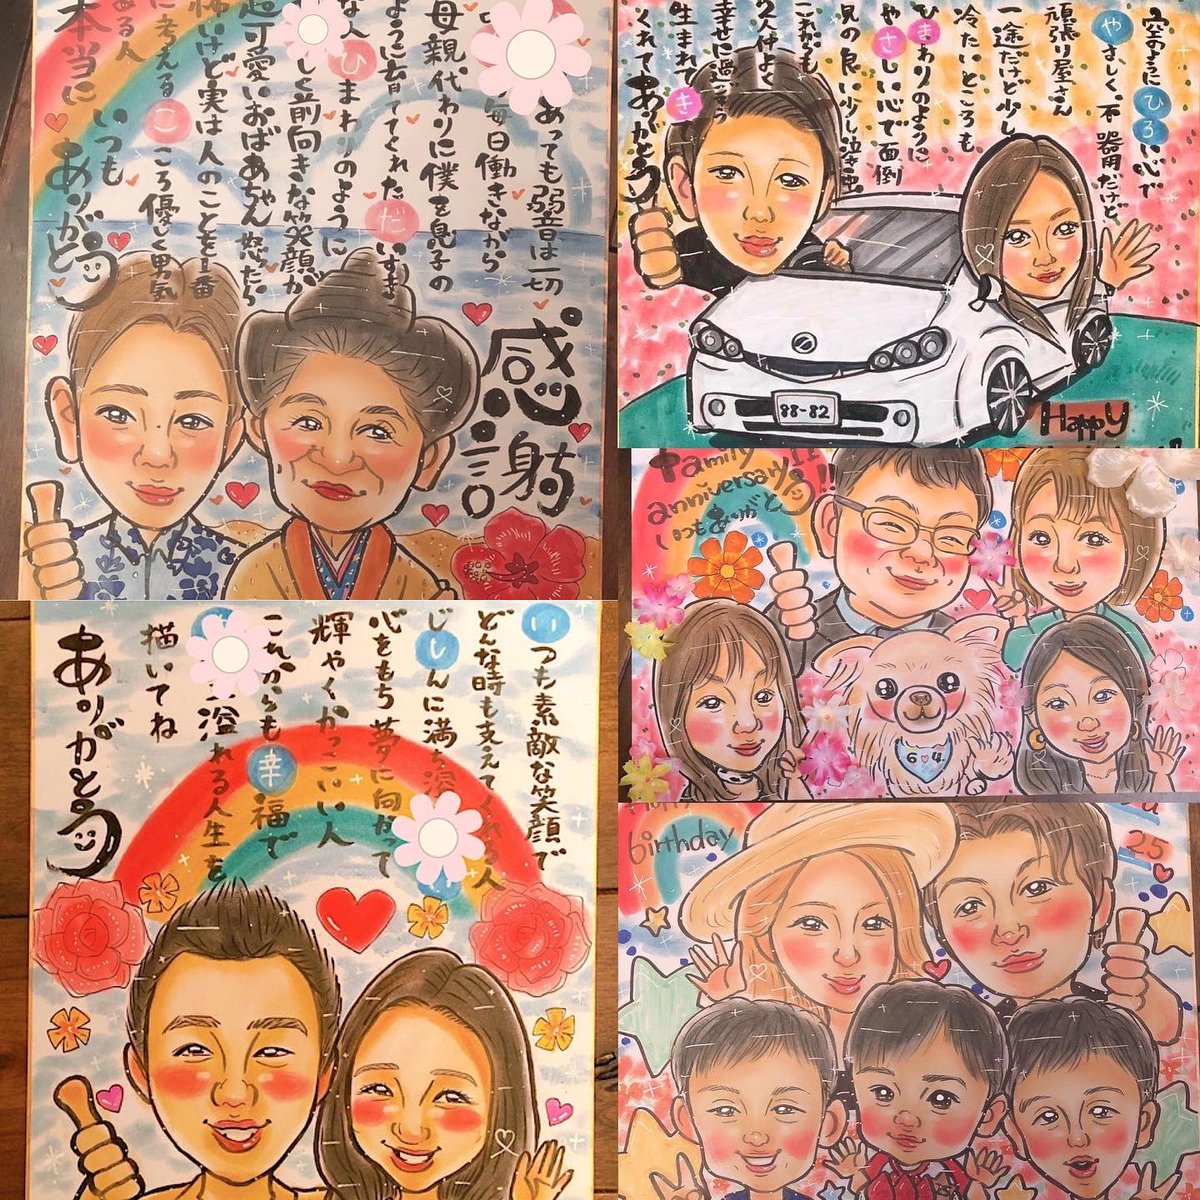 あっても弱音は一切
毎日働きながら
母親代わりに僕を息子の
ように育ててくれただいすき
な人ひまわりのように
しく前向きな笑顔が
超可愛いおばあちゃん怒ったら
怖いけど実は人のことを一番
に考えるこころ優しく男気
ある人
本当にいつも
ありがとう
感謝
空のようにひろい心で
やさしく不器用だけど、
頑張り屋さん
一途だけど少し
冷たいところも
ひまわりのように
やさしい心で面倒
見の良い少し泣き虫
これからも
2人仲よく
幸せに過ごそう
生まれてき
くれてありがとう
88-82
Happy
Family
anniversary!!
いつもありがとう!!
6 4
いつも素敵な笑顔で
どんな時も支えてくれる人
じしんに満ち溢
心をもち夢に向かって
輝やくかっこいい人
これからも幸福で
溢れる人生を
描いてね
ありがとう
birthday
25